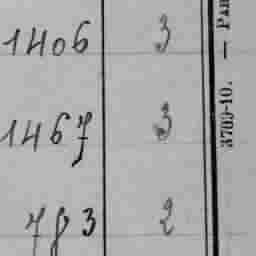 1406 3
1467 3
783 2
3709-10. — Pa